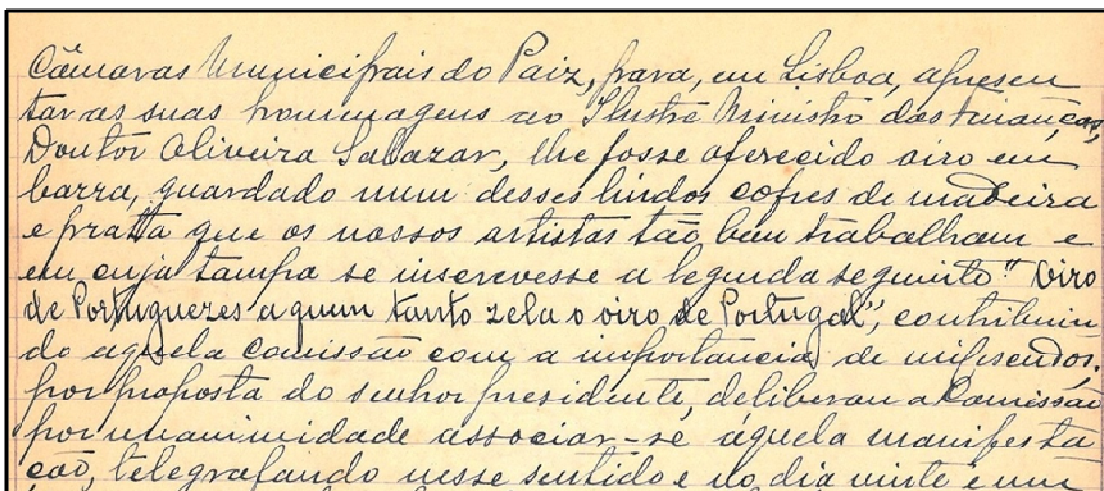 Câmaras Municipais do Paiz, para, em Lisboa, apresen
tar as suas homenagens ao Ilustre Ministro das Finanças,
Doutor Oliveira Salazar, lhe fosse oferecido oiro em
barra, guardado num desses lindos cofres de madeira
e pratta que os nossos artistas tão bem trabalham e
em cuja tampa se inscrevesse a legenda seguinte "Oiro
de Portuguezes a quem tanto zela o oiro de Portugal", contribuin
do aquela comissão com a importancia de mil escudos.
por proposta do senhor presidente, deliberou a Comissão
por unanimidade associar-se áquela manifesta
ção, telegrafando nesse sentido e no dia vinte e um